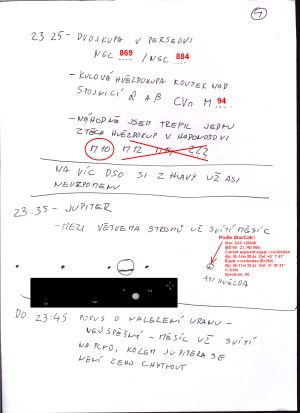 23 25 - DVOJKUPA V PERSEOVI
NGC 869 / NGC 884
- KULOVÁ HVĚZDOKUPA KOUSEK NAD
SPOJNICÍ α A β CVn M 94
- NÁHODNĚ JSEM TREFIL JEDNU
Z TĚCH HVĚZDOKUP V HADONOŠOVI
M10 M12
NA VÍC DSO SI Z HLAVY UŽ ASI
NEVZPOMENU
23:35 - JUPITER
- MEZI VĚTVEMA STROMŮ UŽ SVÍTÍ MĚSÍC
Podle StarCalc:
Current apparent equat. coordinates
Equat. coordinates
ASI HVĚZDA
DO 23:45 POKUS O NALEZENÍ URANU -
NEÚSPĚŠNÝ - MĚSÍC UŽ SVÍTÍ
NAPLNO, KOLEM JUPITERA SE
NENÍ ČEHO CHYTNOUT